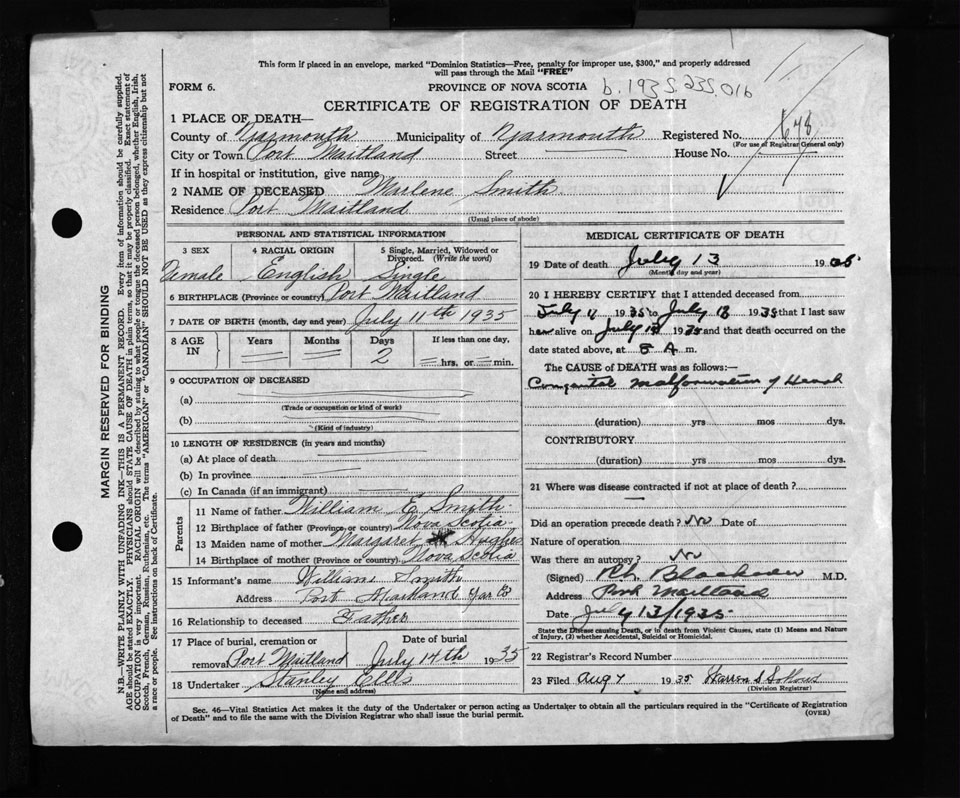 This form if placed in an envelope, marked "Dominion Statistics—Free, penalty for improper use, $300," and properly addressed
will pass through the Mail "FREE"
FORM 6.
PROVINCE OF NOVA SCOTIA
b.1935.235.016
CERTIFICATE OF REGISTRATION OF DEATH
1 PLACE OF DEATH—
County of Yarmouth Municipality of Yarmouth Registered No. 678
(For use of Registrar General only)
City or Town Port Maitland Street House No.
If in hospital or institution, give name
2 NAME OF DECEASED Marlene Smith
Residence Port Maitland
(Usual place of abode)
PERSONAL AND STATISTICAL INFORMATION
3 SEX
Female
4 RACIAL ORIGIN
English
5 Single, Married, Widowed or
Divorced. (Write the word)
Single
6 BIRTHPLACE (Province or country) Port Maitland
7 DATE OF BIRTH (month, day and year) July 11th 1935
8 AGE IN
Years
Months
Days
2
If less than one day,
hrs. or min.
9 OCCUPATION OF DECEASED
(a)
(Trade or occupation or kind of work)
(b)
(Kind of industry)
10 LENGTH OF RESIDENCE (in years and months)
(a) At place of death
(b) In province
(c) In Canada (if an immigrant)
Parents
11 Name of father William E Smith
12 Birthplace of father (Province or country) Nova Scotia
13 Maiden name of mother Margaret Hughes
14 Birthplace of mother (Province or country) Nova Scotia
15 Informant's name William Smith
Address Port Maitland Yar Co
16 Relationship to deceased Father
17 Place of burial, cremation or
removal Port Maitland
Date of burial
July 14th 1935
18 Undertaker Stanley Ellis
(Name and address)
MEDICAL CERTIFICATE OF DEATH
19 Date of death July 13 1935
(Month, day and year)
20 I HEREBY CERTIFY that I attended deceased from
July 11 1935 to July 13 1935 that I last saw
her alive on July 13 1935 and that death occurred on
date stated above, at 8 A m.
The CAUSE of DEATH was as follows:—
Congenital Malformation of Heart
(duration) yrs mos dys.
CONTRIBUTORY
(duration) yrs mos dys.
21 Where was disease contracted if not at place of death?
Did an operation precede death? No Date of
Nature of operation
Was there an autopsy? No
(Signed) M.D.
Address Port Maitland
Date July 13/1935
State the Disease causing Death, or in death from Violent Causes, state (1) Means and Nature
of Injury, (2) whether Accidental, Suicidal or Homicidal.
22 Registrar's Record Number
23 Filed Aug 7 1935
(Division Registrar)
Sec. 46—Vital Statistics Act makes it the duty of the Undertaker or person acting as Undertaker to obtain all the particulars required in the "Certificate of Registration
of Death" and to file the same with the Division Registrar who shall issue the burial permit.
(OVER)
MARGIN RESERVED FOR BINDING
N.B.—WRITE PLAINLY WITH UNFADING INK—THIS IS A PERMANENT RECORD. Every item of information should be carefully supplied.
AGE should be stated EXACTLY. PHYSICIANS should STATE CAUSE OF DEATH in plain terms, so that it may be properly classified. Exact statement of
OCCUPATION is very important. RACIAL ORIGIN will be described by stating to what people or tongue the deceased person belonged, whether English, Irish,
Scotch, French, German, Russian, Ruthenian, etc. The terms "AMERICAN" or "CANADIAN" SHOULD NOT BE USED as they express citizenship but not
a race or people. See instructions on back of Certificate.